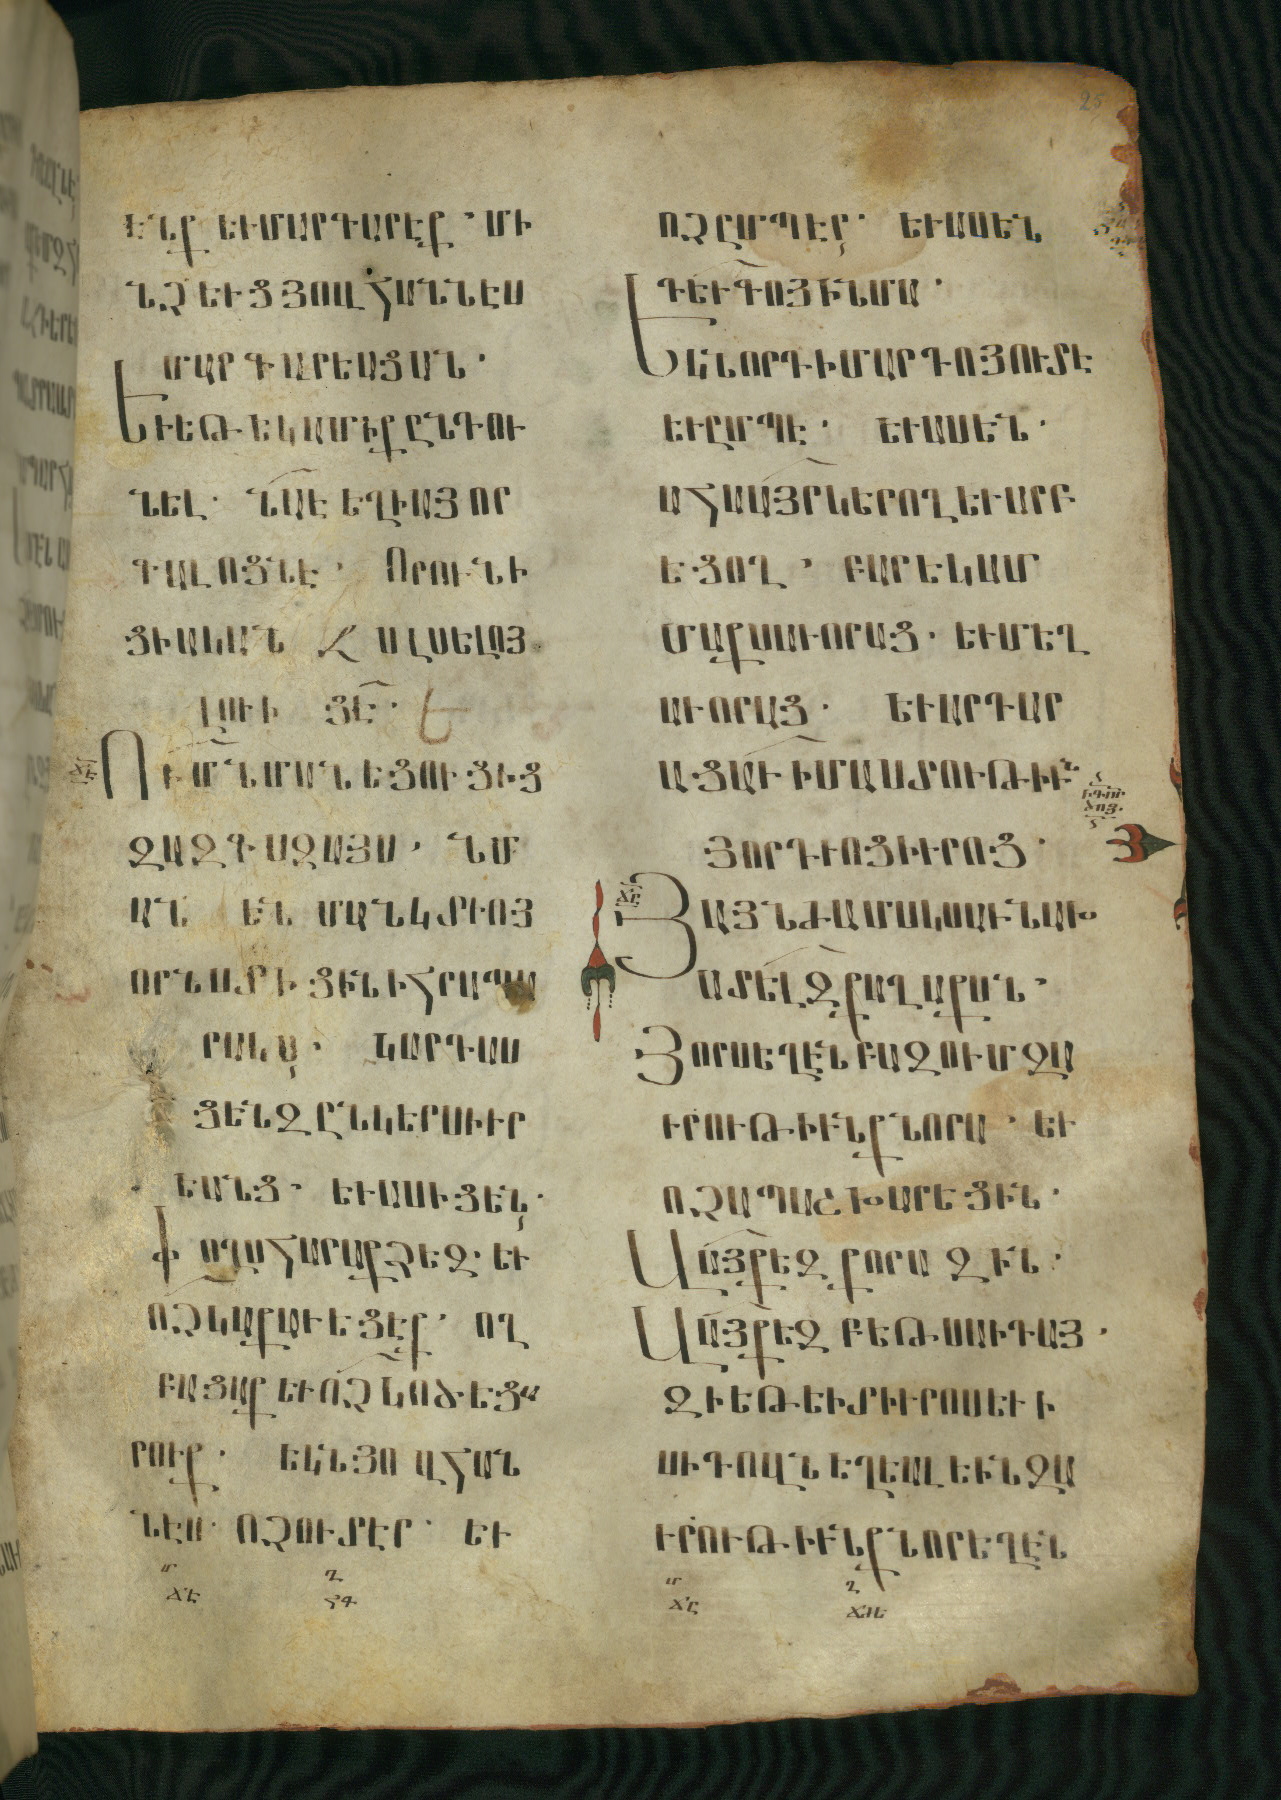 ԷՆՔ ԵՒՄԱՐԳԱՐԷՔ · ՄԻ
ՆՉԵՒՑՅՈՎՀԱՆՆԷՍ
ՄԱՐԳԱՐԵԱՑԱՆ ·
ԵՒԵԹԵԿԱՄԻՔԸՆԴՈՒ
ՆԵԼ · ՆԱԷ ԵՂԻԱՅՈՐ
ԳԱԼՈՑՆԷ · ՈՐՈՒՆԻ
ՑԻԱԿԱՆ Ջ ՍԼՍԵԼՈՅ
ԼՈՒԻ ՑԷ · Ե
ՃԷ
ՈՒՄՆՄԱՆԵՑՈՒՑԻՑ
ԶԱԶԳՍԶԱՅՍ · ՆՄ
ԱՆ ԵՆ ՄԱՆԿՏՒՈՅ
ՈՐՆՍՏԻՑԻՆԻՀՐԱՊԱ
ՐԱԿՍ · ԿԱՐԴԱՍ
ՑԵՆԶԸՆԿԵՐՍԻՒՐ
ԵԱՆՑ · ԵՒԱՍԻՑԵՆ ·
ՓՈՂՍՀԱՐԱՔՁԵԶ · ԵՒ
ՈՉԿԱՔԱՒԵՑԷՔ · ՈՂ
ԲԱՑԱՔ ԵՒՈՉ ԿՈԾԵՑԱ
ՐՈՒՔ · ԵԿՆՅՈ ՎՀԱՆ
ՆԷՍ · ՈՉՈՒՏԷՐ · ԵՒ
25
ՈՉԸՄՊԷՐ · ԵՒԱՍԵՆ
ԴԵՒԳՈՅԻՆՄԱ ·
ԵԿՆՈՐԴԻՄԱՐԴՈՅՈՒՏԷ
ԵՒԸՄՊԷ · ԵՒԱՍԵՆ ·
ԱՀԱԱՅՐԿԵՐՈՂԵՒԱՐԲ
ԵՑՈՂ · ԲԱՐԵԿԱՄ
ՄԱՔՍԱՒՈՐԱՑ · ԵՒՄԵՂ
ԱՒՈՐԱՑ · ԵՒԱՐԴԱՐ
ԱՑԱՒ ԻՄԱՍՏՈՒԹԻՒՆ
ՅՈՐԴՒՈՑԻՒՐՈՑ ·
ՃԸ
ՅԱՅՆԺԱՄՍԿՍԱՒՆԱԽ
ԱՏԵԼԶՔԱՂԱՔՍՆ ·
ՅՈՐՍԵՂԷՆԲԱԶՈՒՄԶԱ
ՒՐՈՒԹԻՒՆՔՆՈՐԱ · ԵՒ
ՈՉԱՊԱՇԽԱՐԵՑԻՆ ·
ՎԱՅՔԵԶ ՔՈՐԱԶԻՆ ·
ՎԱՅՔԵԶ ԲԵԹՍԱԻԴԱՅ ·
ԶԻԵԹԵԻՏԻՒՐՈՍԵՒԻ
ՍԻԴՈՎՆ ԵՂԵԱԼԵԻՆԶԱ
ՒՐՈՒԹԻՒՆՔՆՈՐԵՂԷՆ